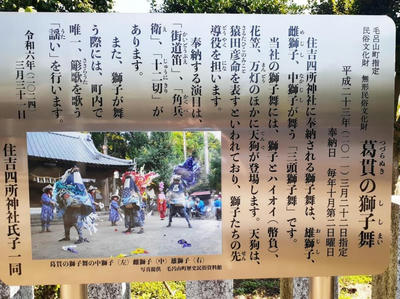 毛呂山町指定
民俗文化財 無形民俗文化財
葛貫の獅子舞
つづらぬき ししまい
平成二十三年(二〇一一)三月二十二日指定
奉納日 毎年十月第二日曜日
住吉四所神社に奉納される獅子舞は、雄獅子、
雌獅子、中獅子が舞う「三頭獅子舞」です。
当社の獅子舞には、獅子とハイオイ、幣負、
花笠、万灯のほかに天狗が登場します。天狗は、
猿田彦命を表すといわれており、獅子たちの先
導役を担います。
奉納する演目は、
「街道笛」、「角兵
衛」、「十二切」が
あります。
また、獅子が舞
う際には、町内で
唯一、簓歌を歌う
「謡い」を行います。
令和六年(二〇二四)
三月三十一日
住吉四所神社氏子一同
葛貫の獅子舞の中獅子(左)雌獅子(中)雄獅子(右)
写真提供 毛呂山町歴史民俗資料館